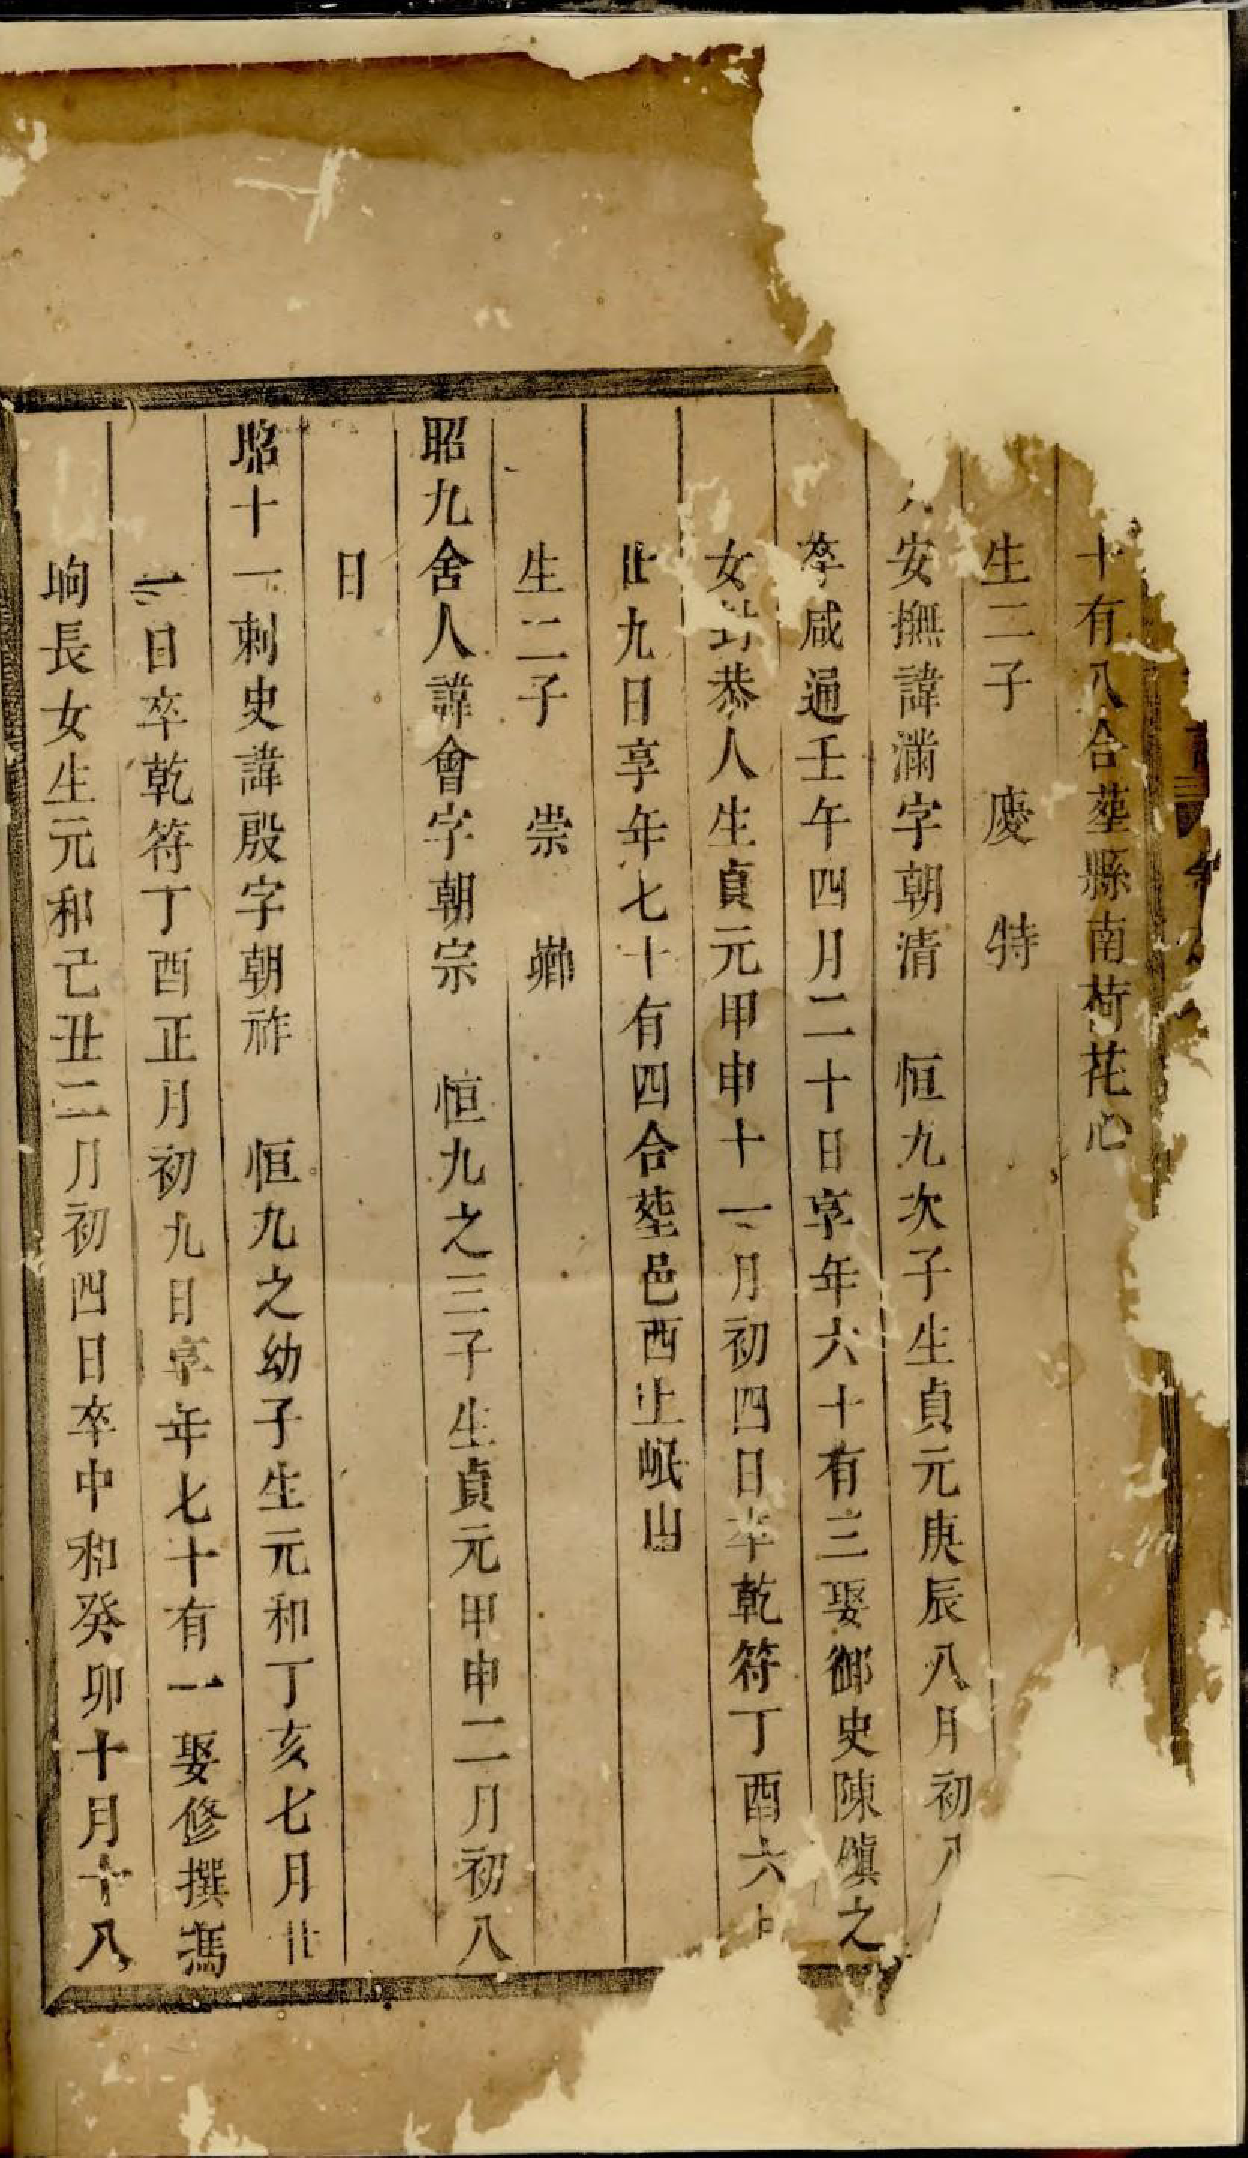 十有八合塟縣南荷花心
生二子　慶　特
安撫諱滿字朝清　恒九次子生貞元庚辰八月初八
卒咸通壬午四月二十日享年六十有三娶御史陳愼之
女封恭人生貞元甲申十一月初四日卒乾符丁酉六
廿九日享年七十有四合塟邑西上岷山
生二子　崇
昭九舍人諱會字朝宗　恒九之三子生貞元甲申二月初八
日
昭十一刺史諱殷字朝祚　恒九之幼子生元和丁亥七月廿
二日卒乾符丁酉正月初九日享年七十有一娶修撰馮
坰長女生元和己丑二月初四日卒中和癸卯十月十八